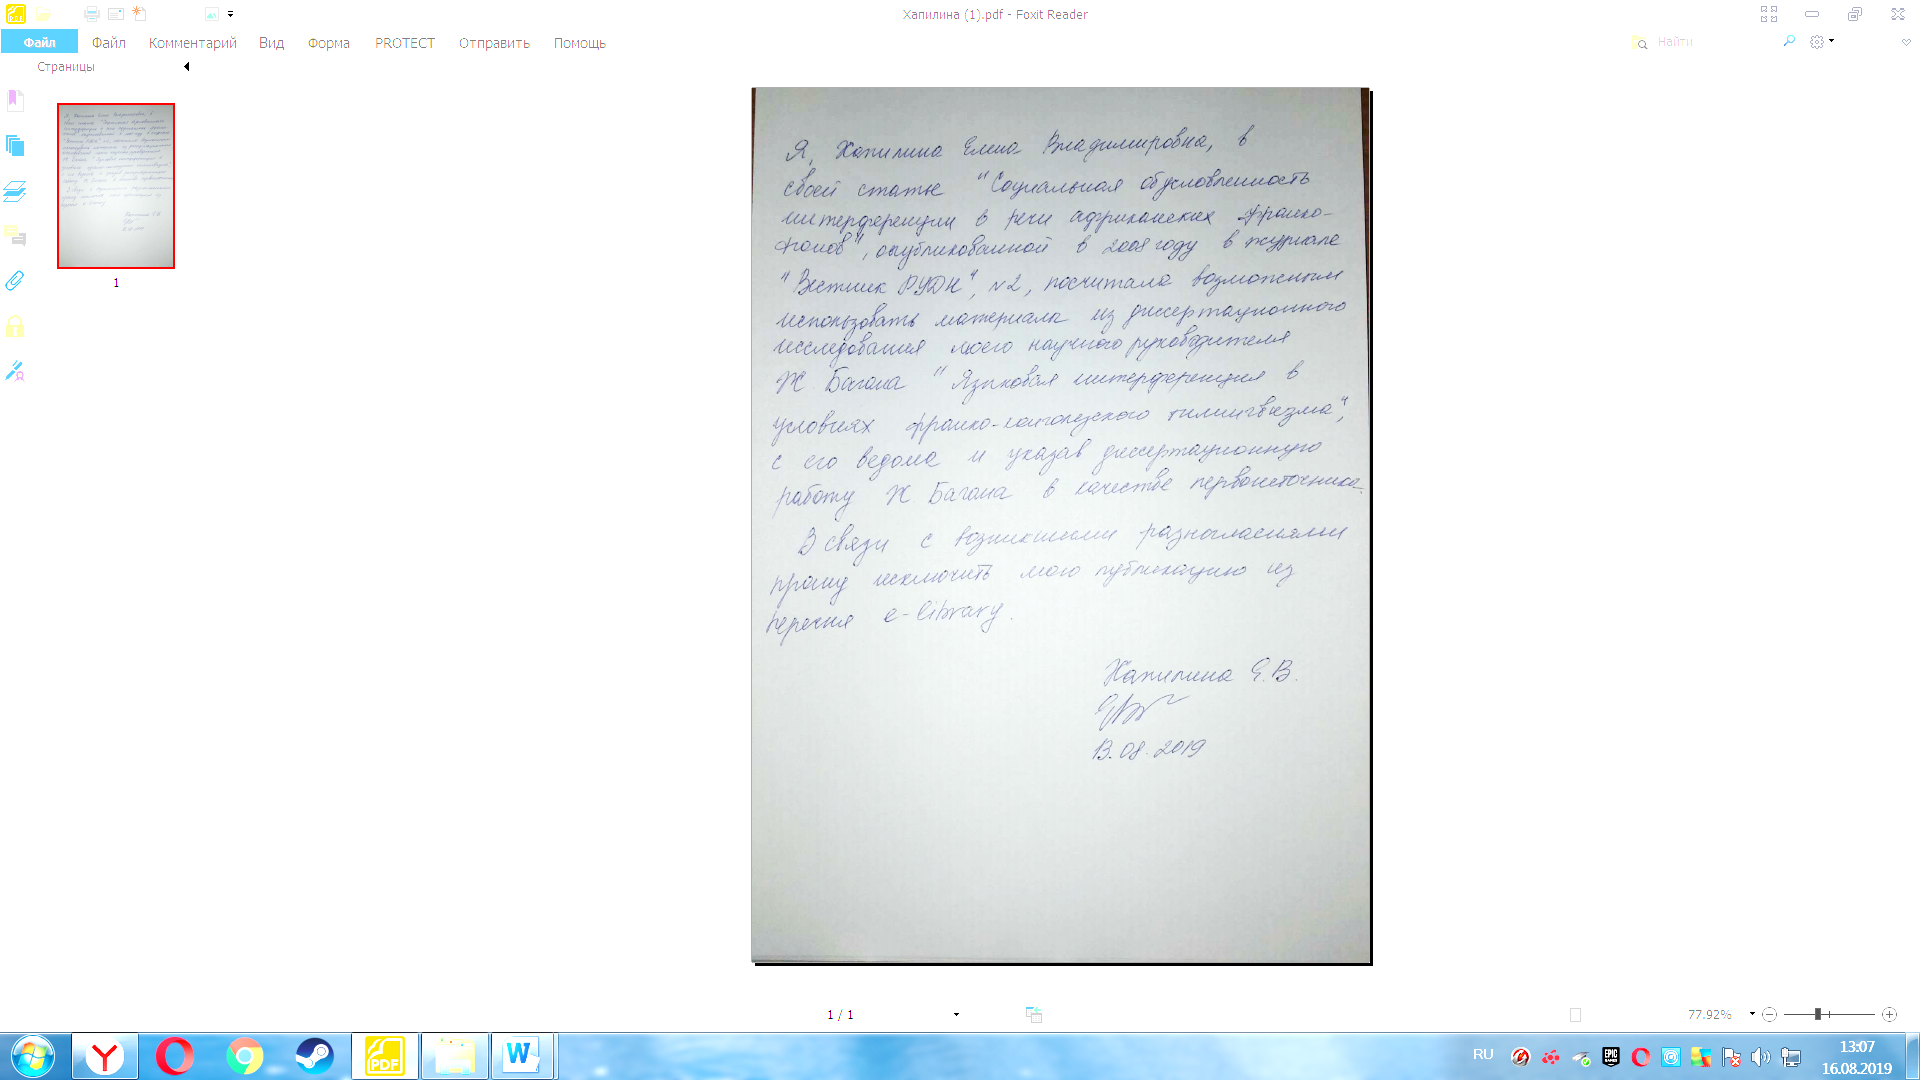 Хапилина (1).pdf - Foxit Reader
Файл Файл Комментарий Вид Форма PROTECT Отправить Помощь
Найти
Страницы
1
Я, Хапилина Елена Владимировна, в
своей статье "Социальная обусловленность
интерференции в речи африканских франко-
фонов", опубликованной в 2008 году в журнале
"Вестник РУДН", №2, посчитала возможным
использовать материалы из диссертационного
исследования моего научного руководителя
Ж. Багана "Языковая интерференция в
условиях франко-конголезского билингвизма",
с его ведома и указав диссертационную
работу Ж Багана в качестве первоисточника.
В связи с возникшими разногласиями
прошу исключить мою публикацию из
перечня e-library.
Хапилина Е.В.
13.08.2019
1 / 1
77.92%
RU
13:07
16.08.2019